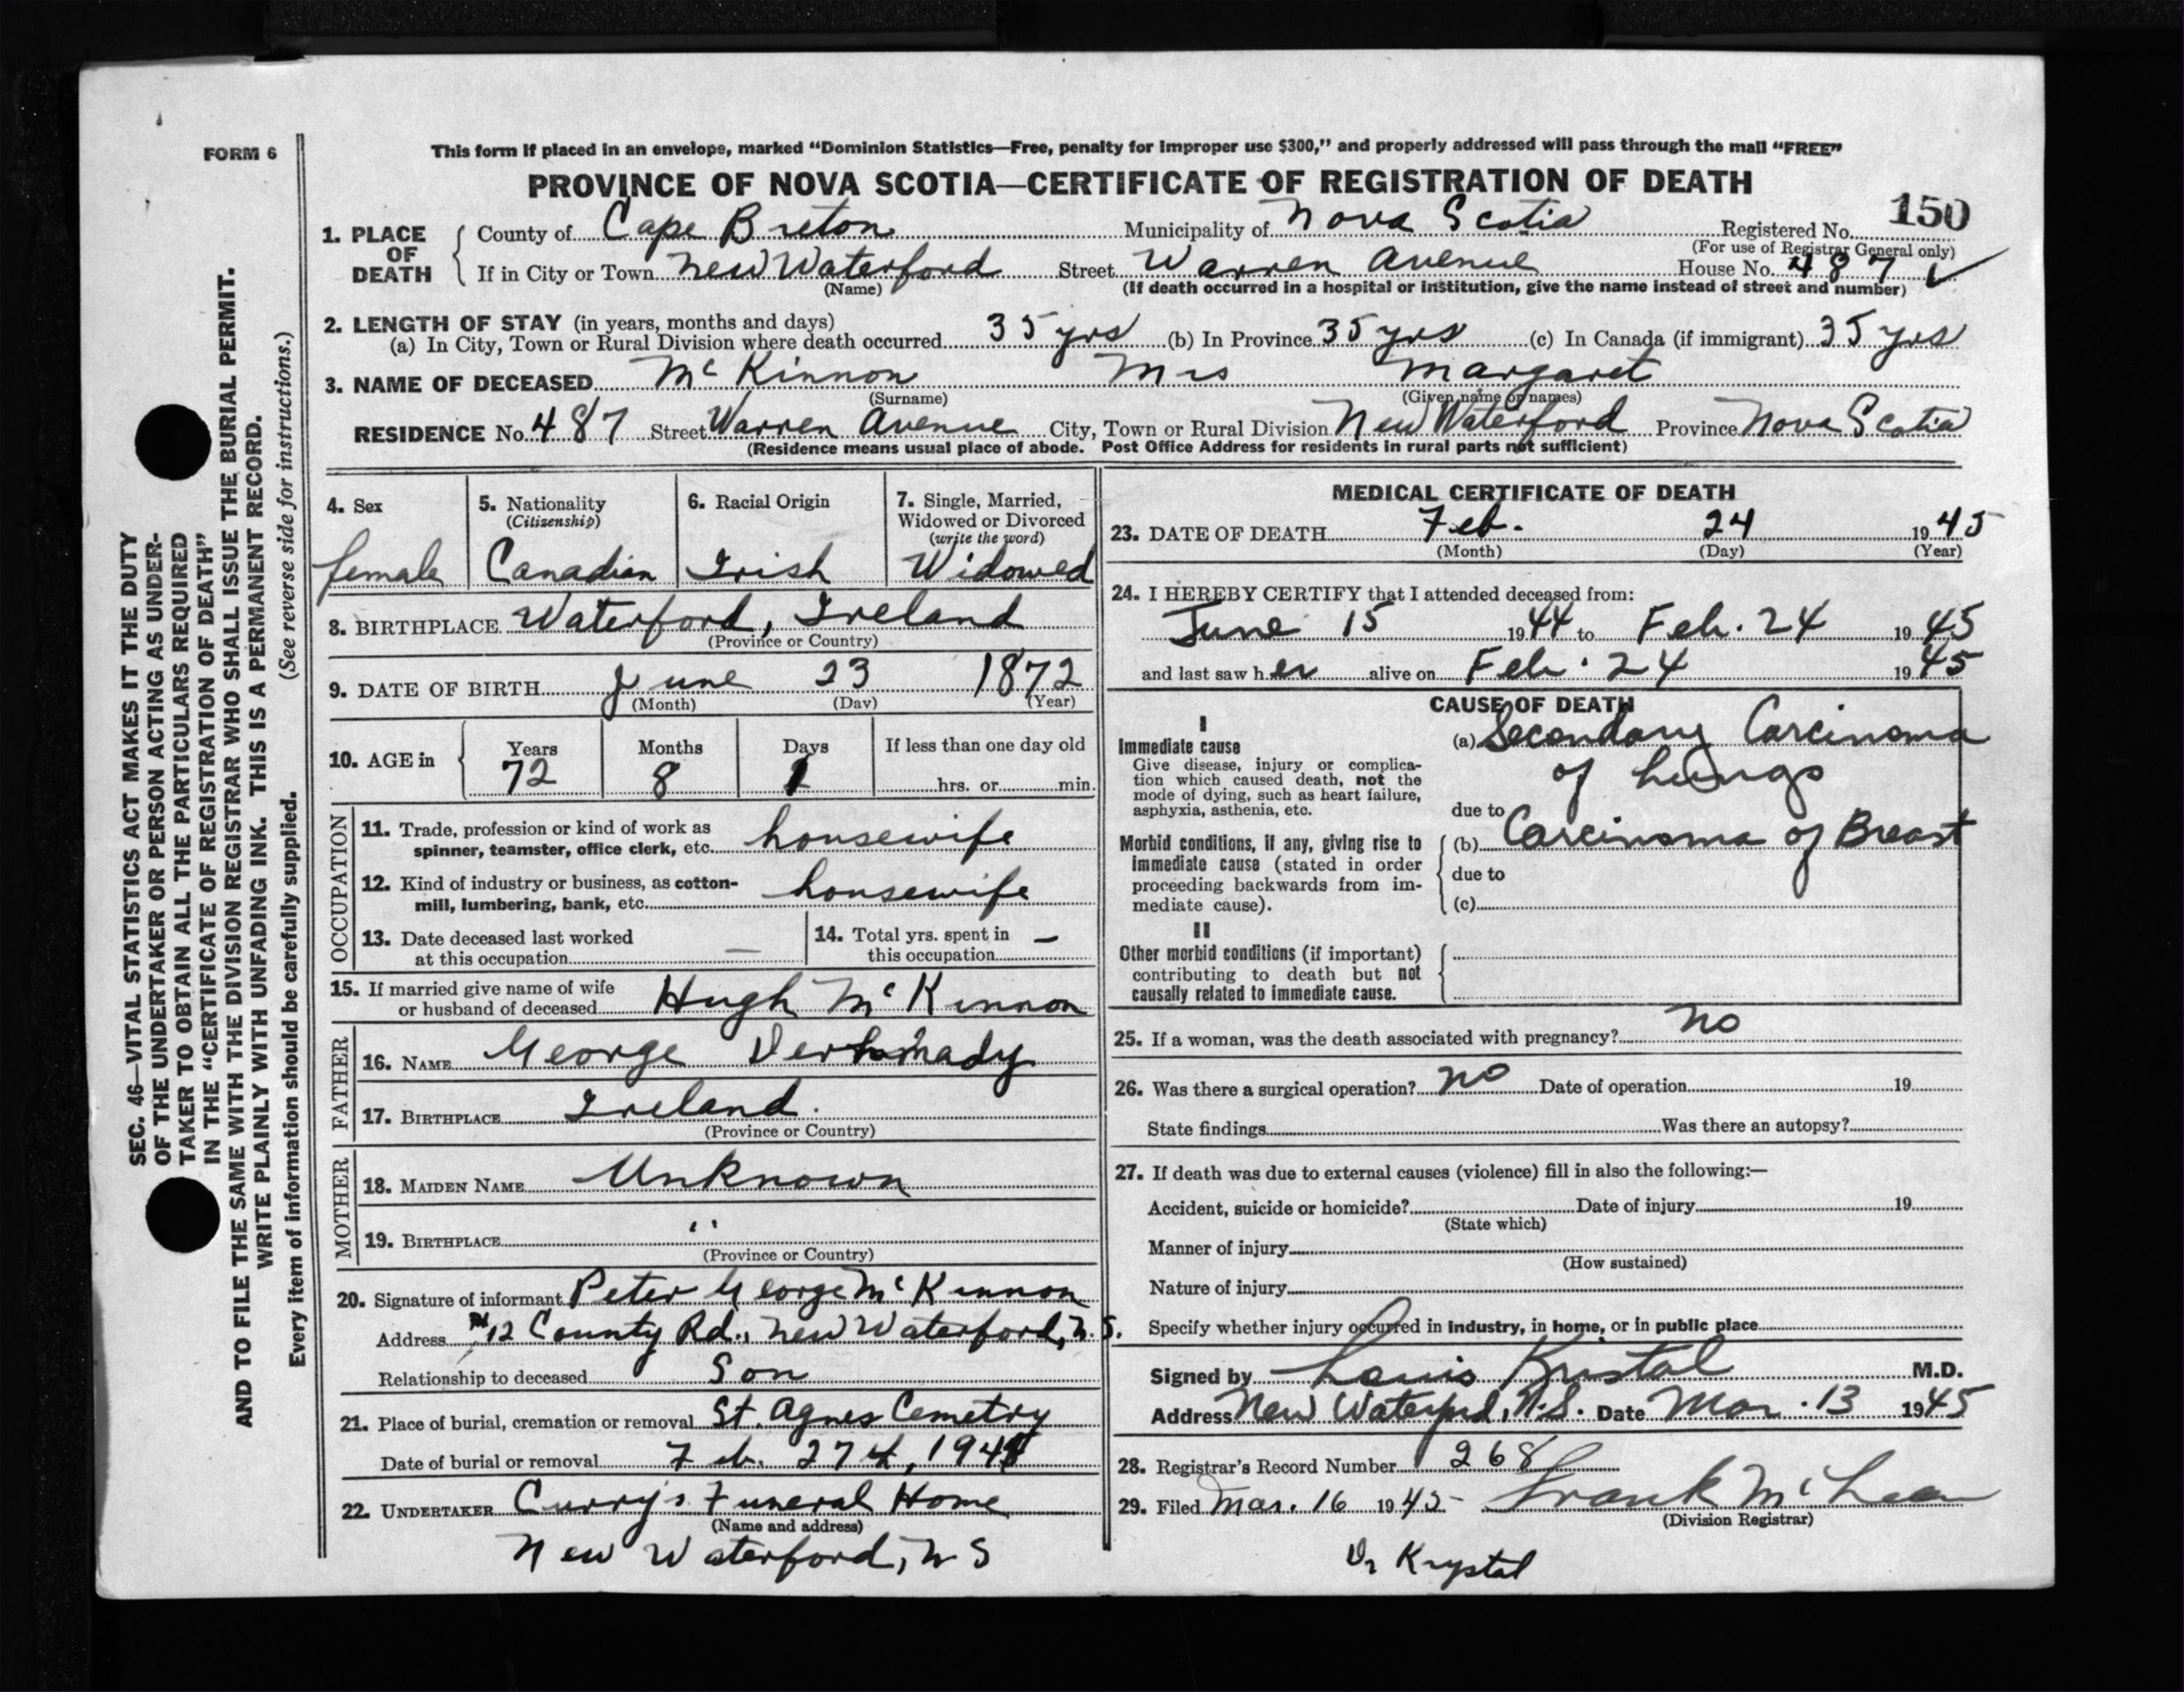 FORM 6
This form if placed in an envelope, marked “Dominion Statistics—Free, penalty for improper use $300,” and properly addressed will pass through the mail “FREE”
PROVINCE OF NOVA SCOTIA—CERTIFICATE OF REGISTRATION OF DEATH
150
1. PLACE OF DEATH
County of Cape Breton Municipality of Nova Scotia Registered No.
(For use of Registrar General only)
If in City or Town New Waterford Street Warren Avenue House No. 487 ✓
(Name) (If death occurred in a hospital or institution, give the name instead of street and number)
2. LENGTH OF STAY (in years, months and days)
(a) In City, Town or Rural Division where death occurred 35 yrs (b) In Province 35 yrs (c) In Canada (if immigrant) 35 yrs
3. NAME OF DECEASED McKinnon Mrs Margaret
(Surname) (Given name or names)
RESIDENCE No. 487 Street Warren Avenue City, Town or Rural Division New Waterford Province Nova Scotia
(Residence means usual place of abode. Post Office Address for residents in rural parts not sufficient)
4. Sex
female
5. Nationality
(Citizenship)
Canadian
6. Racial Origin
Irish
7. Single, Married,
Widowed or Divorced
(write the word)
Widowed
8. BIRTHPLACE Waterford, Ireland
(Province or Country)
9. DATE OF BIRTH June 23 1872
(Month) (Day) (Year)
10. AGE in
Years Months Days If less than one day old
72 8 1 hrs. or min.
OCCUPATION
11. Trade, profession or kind of work as
spinner, teamster, office clerk, etc. housewife
12. Kind of industry or business, as cotton-
mill, lumbering, bank, etc. housewife
13. Date deceased last worked
at this occupation —
14. Total yrs. spent in
this occupation —
15. If married give name of wife
or husband of deceased Hugh McKinnon
FATHER
16. NAME George
17. BIRTHPLACE Ireland.
(Province or Country)
MOTHER
18. MAIDEN NAME Unknown
19. BIRTHPLACE "
(Province or Country)
20. Signature of informant Peter George McKinnon
Address 12 County Rd., New Waterford, N.S.
Relationship to deceased Son
21. Place of burial, cremation or removal St. Agnes Cemetry
Date of burial or removal Feb. 27
22. UNDERTAKER Curry's Funeral Home
(Name and address)
New Waterford, NS
MEDICAL CERTIFICATE OF DEATH
23. DATE OF DEATH Feb. 24 1945
(Month) (Day) (Year)
24. I HEREBY CERTIFY that I attended deceased from:
June 15 1944 to Feb. 24 1945
and last saw her alive on Feb. 24 1945
CAUSE OF DEATH
I
Immediate cause
Give disease, injury or complica-
tion which caused death, not the
mode of dying, such as heart failure,
asphyxia, asthenia, etc.
(a) Secondary Carcinoma
of Lungs
due to
Morbid conditions, if any, giving rise to
immediate cause (stated in order
proceeding backwards from im-
mediate cause).
(b) Carcinoma of Breast
due to
(c)
II
Other morbid conditions (if important)
contributing to death but not
causally related to immediate cause.
25. If a woman, was the death associated with pregnancy? no
26. Was there a surgical operation? no Date of operation 19
State findings Was there an autopsy?
27. If death was due to external causes (violence) fill in also the following:—
Accident, suicide or homicide? Date of injury 19
(State which)
Manner of injury
(How sustained)
Nature of injury
Specify whether injury occurred in industry, in home, or in public place
Signed by Louis Krystal M.D.
Address New Waterford, N.S. Date Mar. 13 1945
28. Registrar's Record Number 268
29. Filed Mar. 16 1945 Frank McLean
(Division Registrar)
Dr Krystal
SEC. 46—VITAL STATISTICS ACT MAKES IT THE DUTY
OF THE UNDERTAKER OR PERSON ACTING AS UNDER-
TAKER TO OBTAIN ALL THE PARTICULARS REQUIRED
IN THE “CERTIFICATE OF REGISTRATION OF DEATH”
AND TO FILE THE SAME WITH THE DIVISION REGISTRAR WHO SHALL ISSUE THE BURIAL PERMIT.
WRITE PLAINLY WITH UNFADING INK. THIS IS A PERMANENT RECORD.
Every item of information should be carefully supplied. (See reverse side for instructions.)